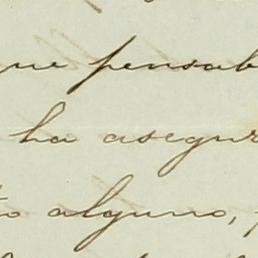 que pensab
ha asegur
to alguno,